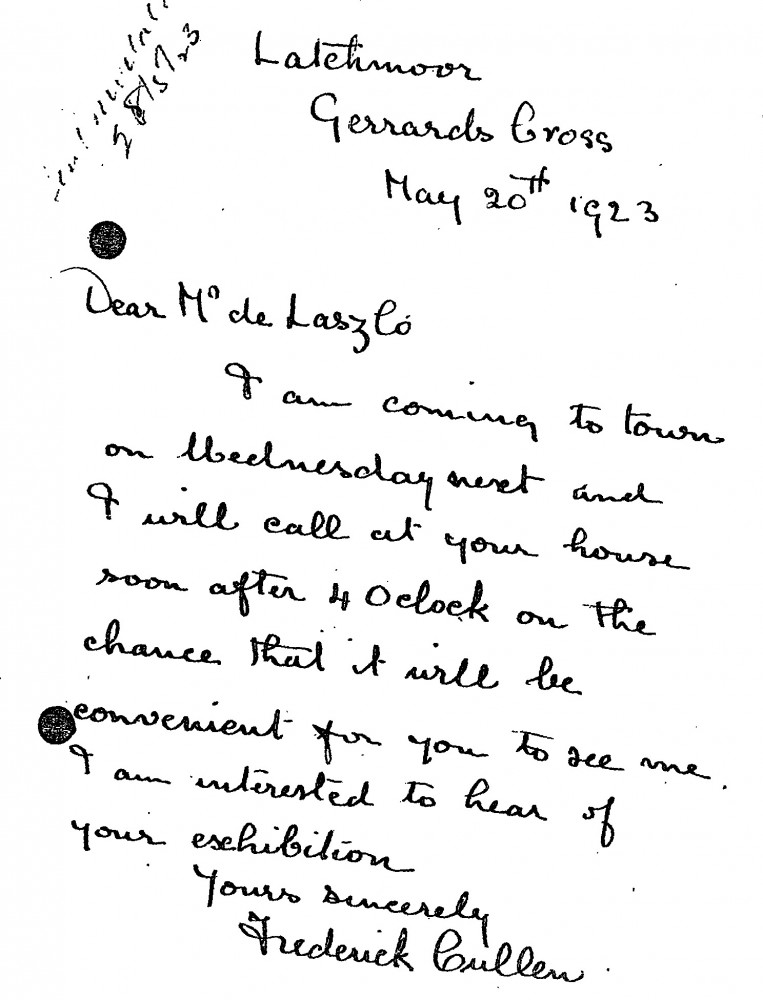 28/5/23
Latchmoor
Gerrards Cross
May 20th 1923
Dear Mr de Laszló
I am coming to town
on Wednesday next and
I will call at your house
soon after 4 Oclock on the
chance that it will be
convenient for you to see me.
I am interested to hear of
your exhibition
Yours sincerely
Frederick Cullen.